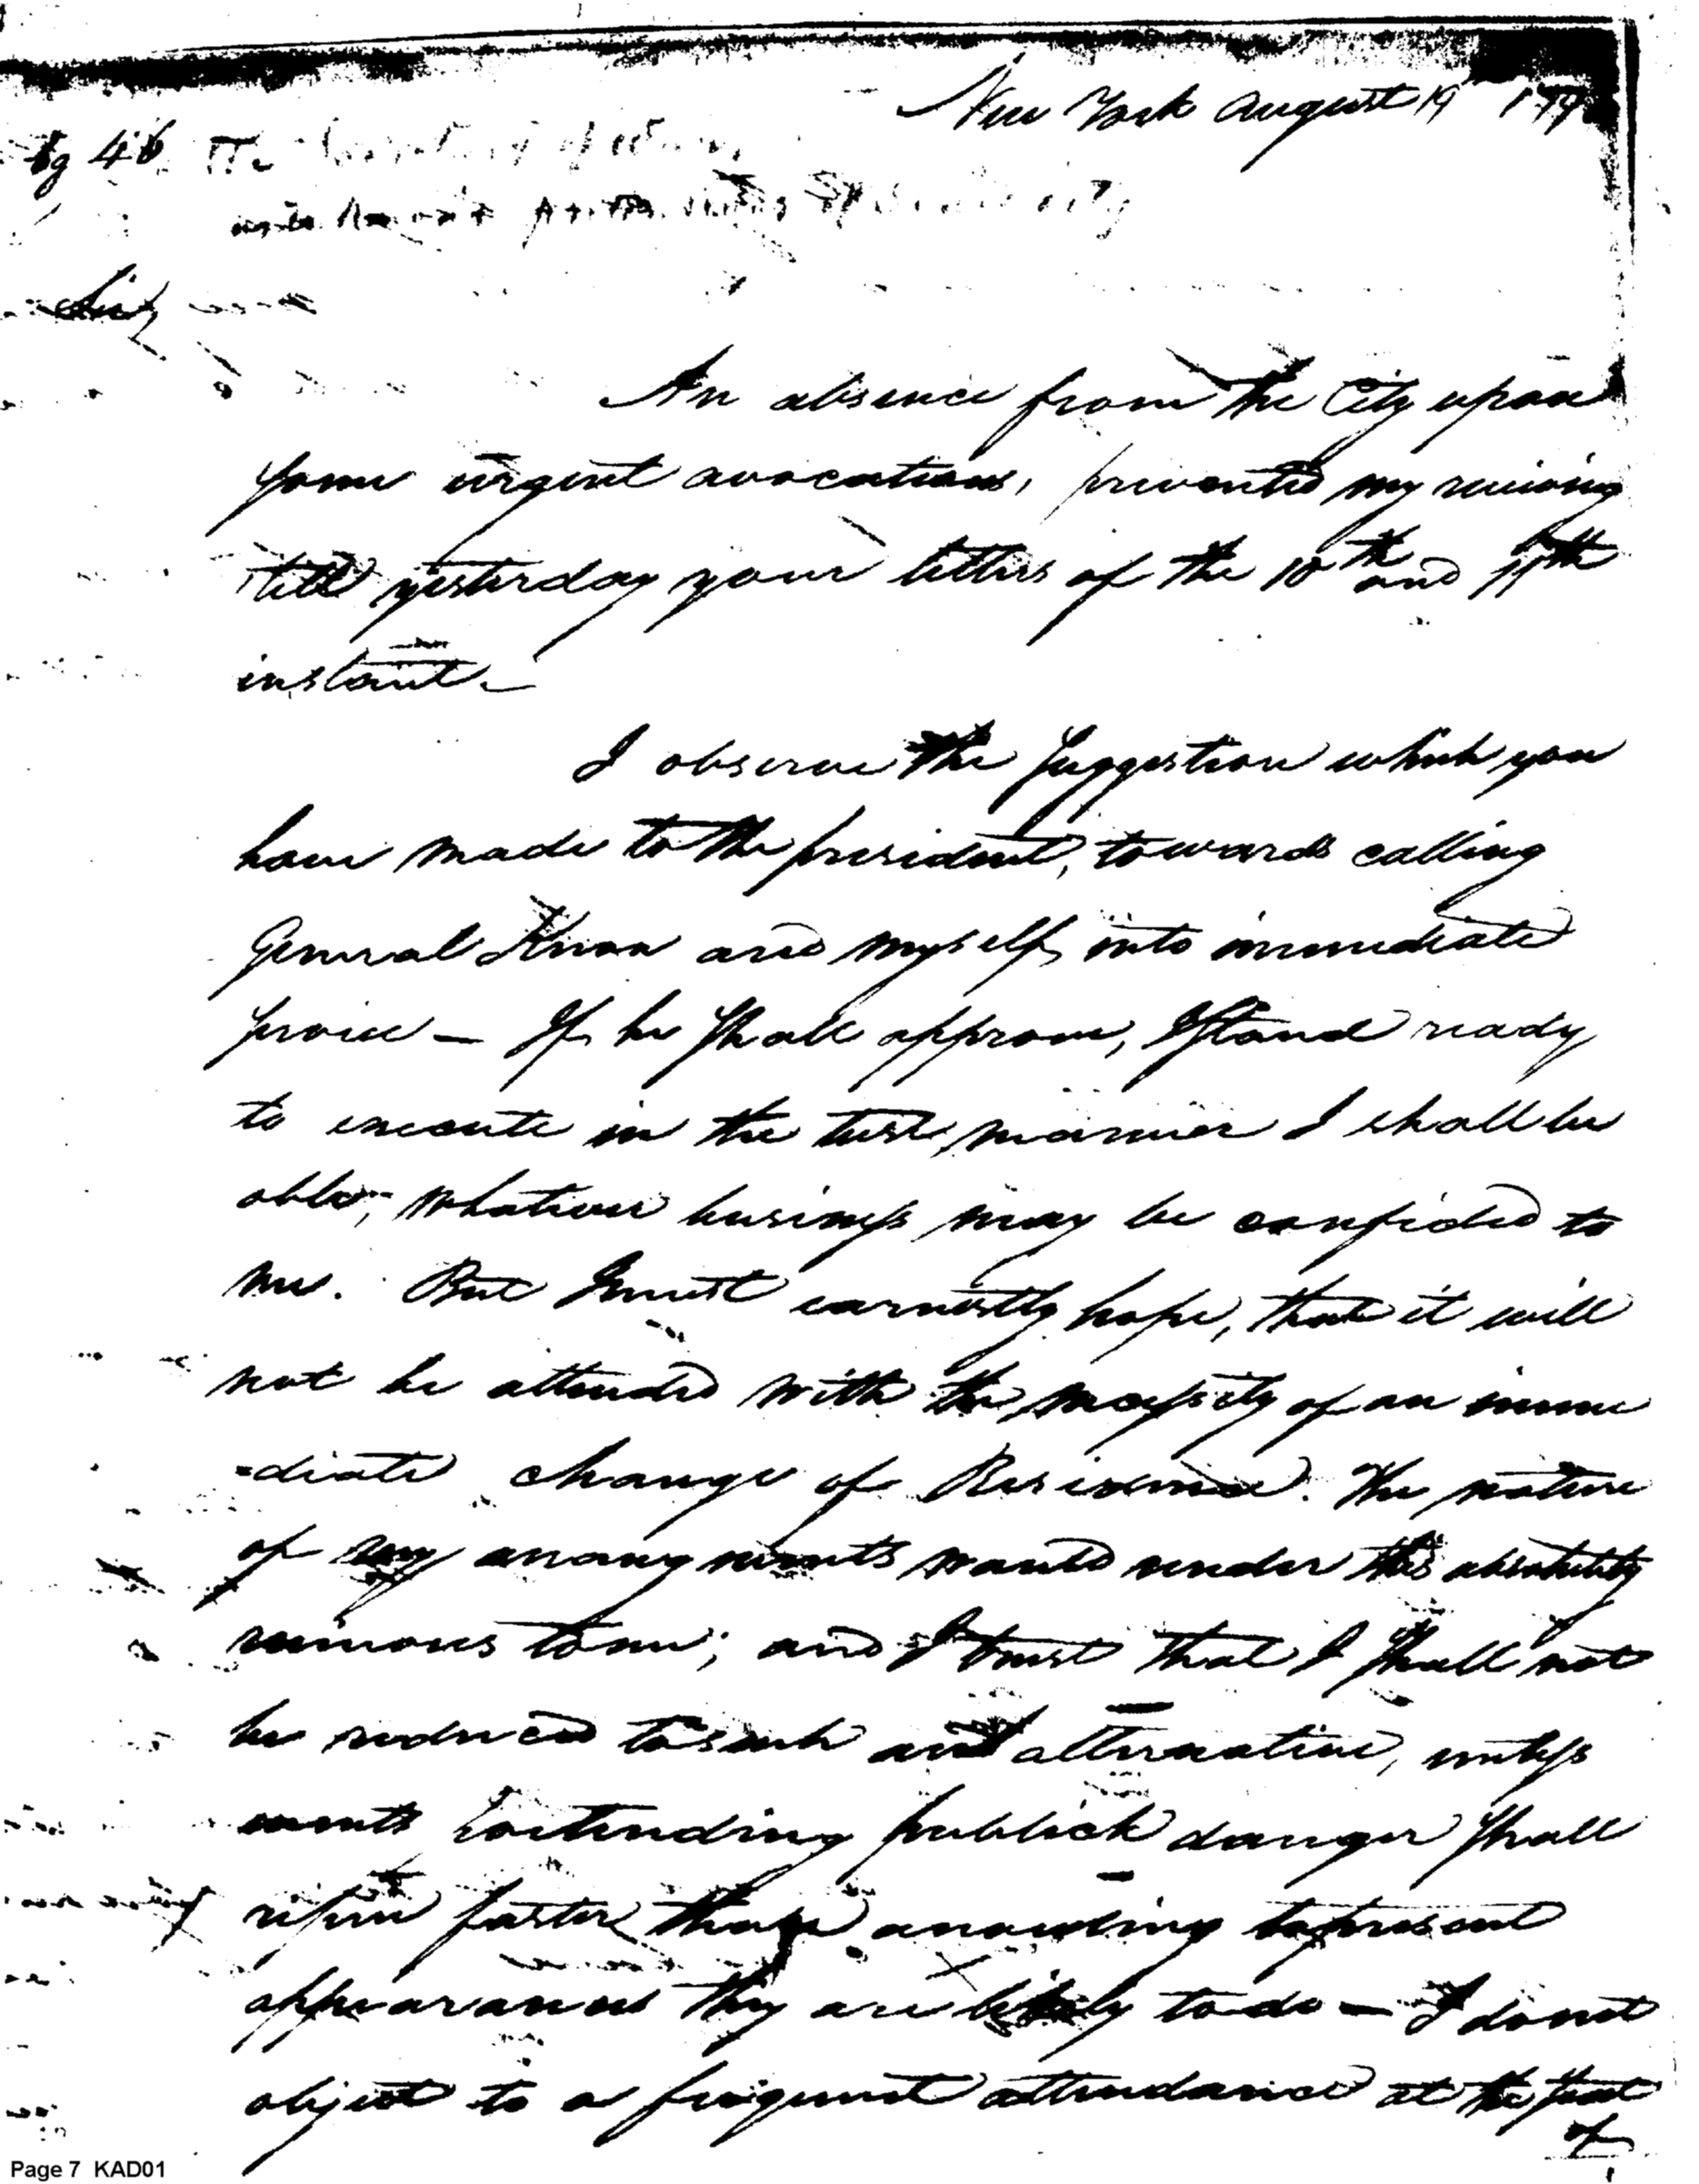 New York August 19 179
Pg 46 The Secretary of War
Sir,
An absence from the City upon
some urgent avocations, prevented my receiving
till yesterday your letters of the 10th and 11th
instant.
I observe the suggestion which you
have made to the president, towards calling
General Knox and myself into immediate
service — If he shall approve, I stand ready
to execute in the best manner I shall be
able, whatever business may be confided to
me. But I must earnestly hope, that it will
not be attended with the necessity of an imme
=diate change of Residence. The nature
of my arrangements would render this absolutely
ruinous to me; and I trust that I shall not
be reduced to such an alternative, unless
events portending publick danger shall
ripen faster than according to present
appearances they are likely to do — I do not
object to a frequent attendance at the seat
of
Page 7 KAD01